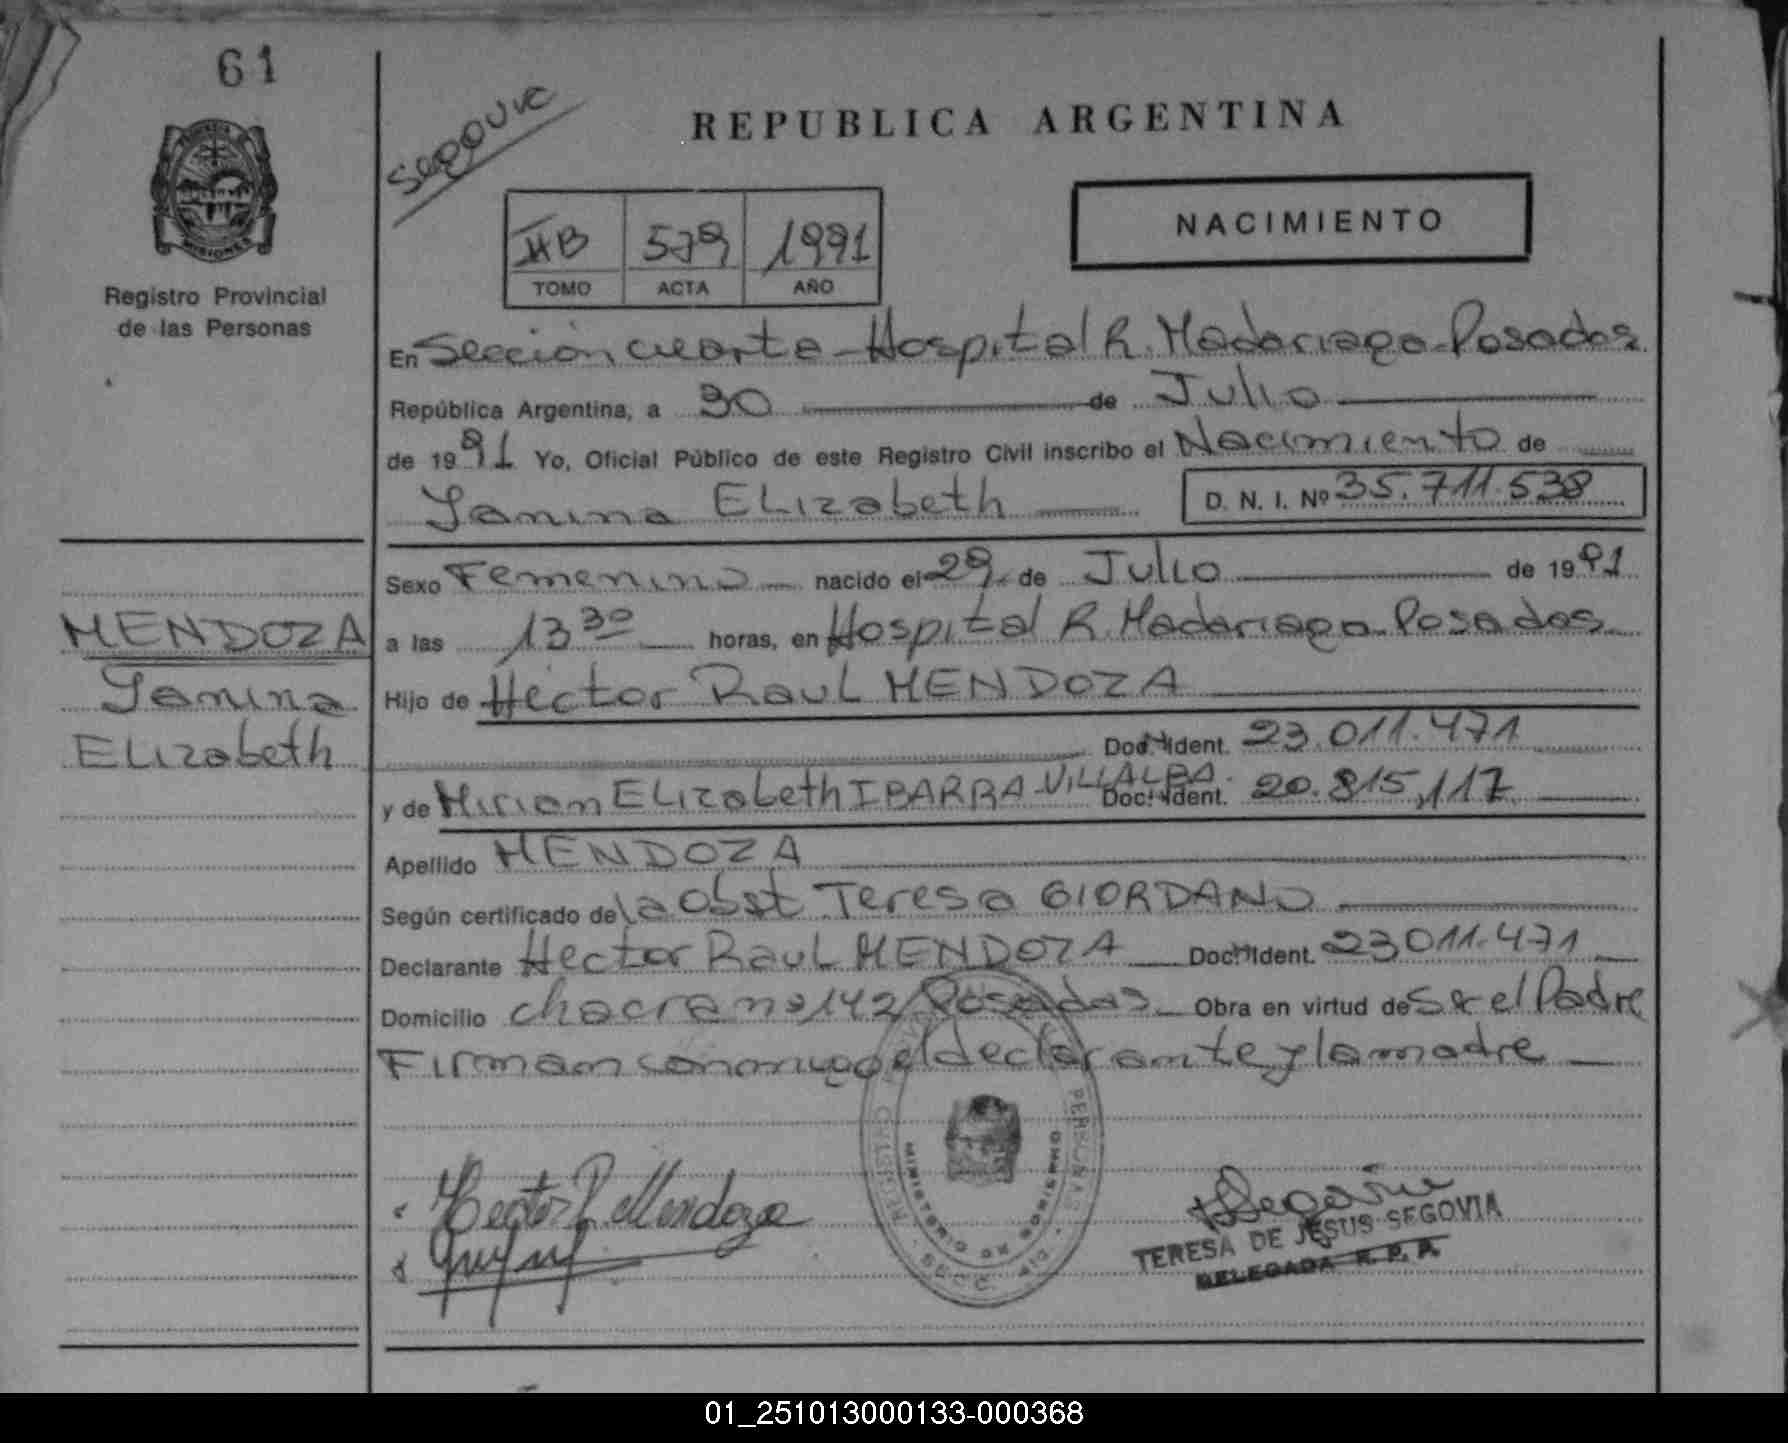 61
Segovia
REPUBLICA ARGENTINA
MISIONES
Registro Provincial
de las Personas
II B 579 1991
TOMO ACTA AÑO
NACIMIENTO
En Sección cuarta - Hospital R. Madariaga - Posadas
República Argentina, a 30 de Julio
de 1991 Yo, Oficial Público de este Registro Civil inscribo el Nacimiento de
Yanina ELizabeth D. N. I. Nº 35.711.538
MENDOZA
Yanina
ELizabeth
Sexo Femenino nacido el 29 de Julio de 1991
a las 13 30 horas, en Hospital R. Madariaga - Posadas
Hijo de Hector RauL MENDOZA
Doc. Ident. 23.011.471
y de Miriam ELizabeth IBARRA - VILLALBA - Doc. Ident. 20.815,117
Apellido MENDOZA
Según certificado de la Obst Teresa GIORDANO
Declarante Hector RauL MENDOZA Doc. Ident. 23011.471
Domicilio chacra nº 142 Posadas Obra en virtud de Ser el Padre
Firman conmigo el declarante y la madre
Hector R. Mendoza
PERSONAS
MINISTERIO DE GOBIERNO
TERESA DE JESUS SEGOVIA
DELEGADA R. P. P.
01_251013000133-000368